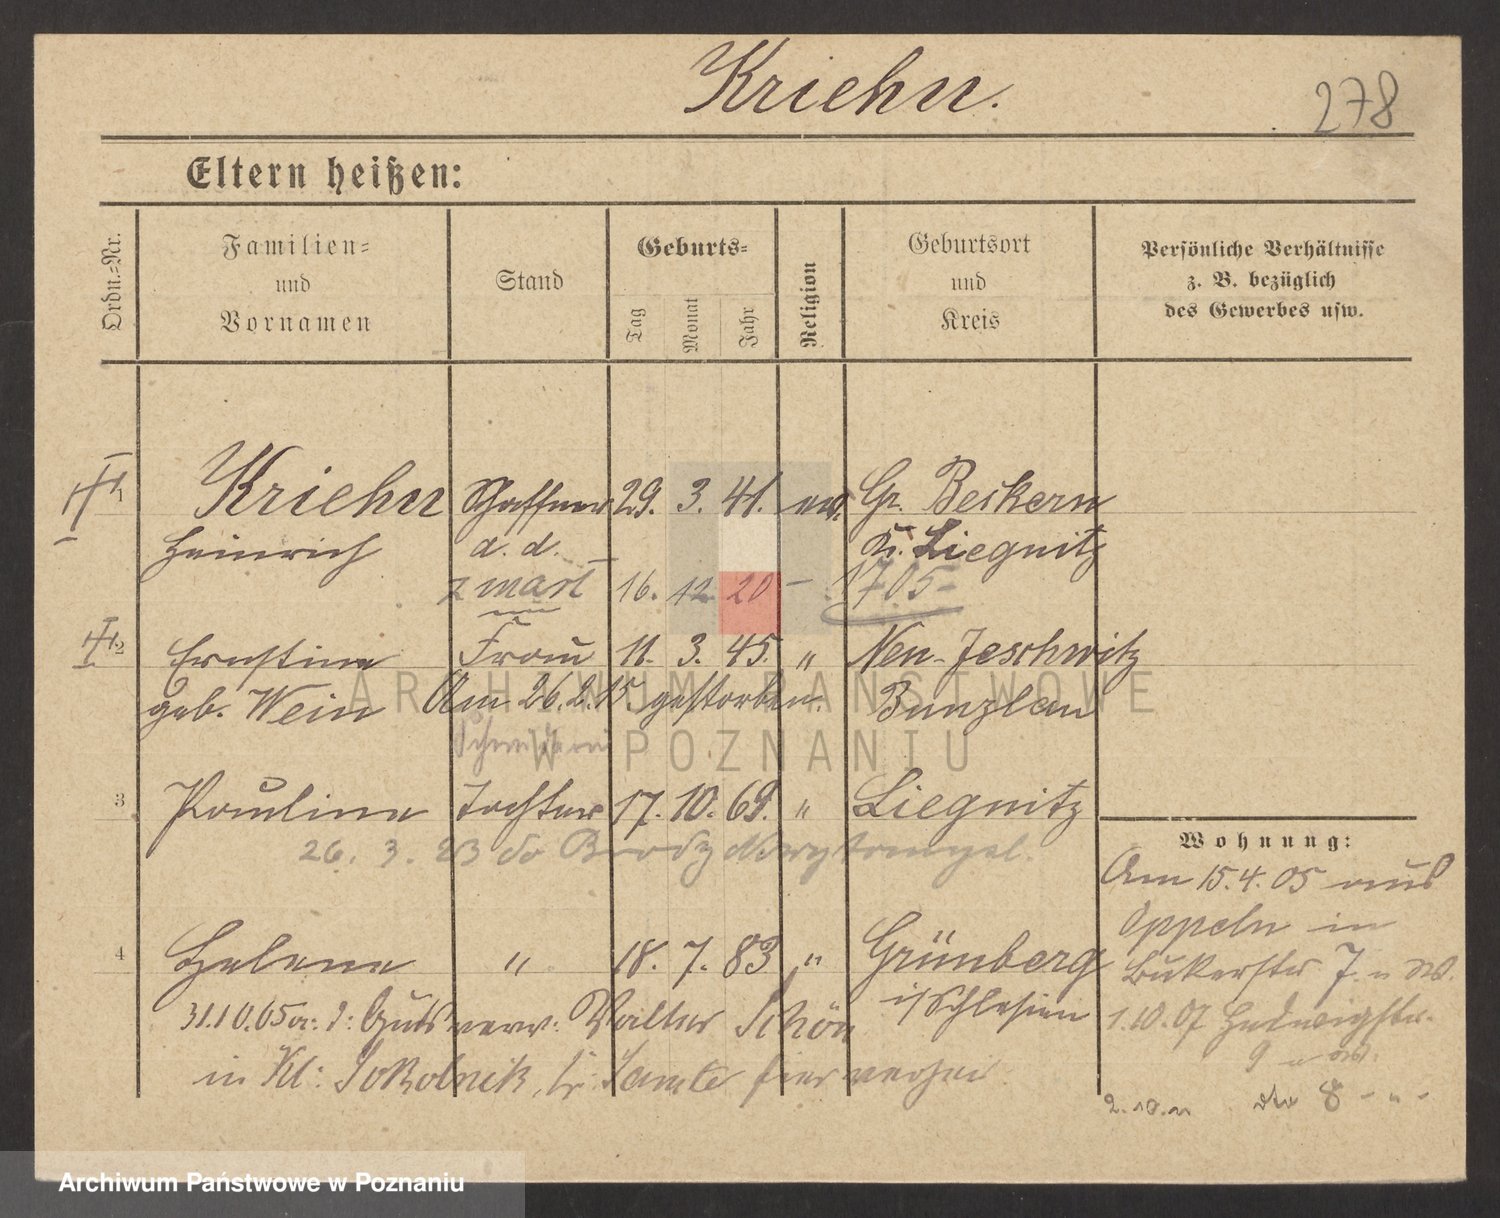 Kriehn.
278
Eltern heißen:
Ordn.-Nr.
Familien-
und
Vornamen
Stand
Geburts-
Tag
Monat
Jahr
Religion
Geburtsort
und
Kreis
Persönliche Verhältnisse
z. B. bezüglich
des Gewerbes usw.
1 Kriehn Schaffner 29. 3. 41. ev. Gr. Beckern
Heinrich a. d. Kr. Liegnitz
zmarł 16. 12. 20 – 1705-
2 Ernstine Frau 11. 3. 45. " Neu-Jeschwitz
geb. Wein Am 26.2.15. gestorben. Bunzlau
ARCHIWUM PAŃSTWOWE
W POZNANIU
3 Pauline Tochter 17. 10. 69. " Liegnitz
26. 3. 23 do
4 Helene " 18. 7. 83 " Grünberg
i/Schlesien
31.10.05 Gutsverw. Walter Schön
in Kl: Sokolnik, Kr. Samter hier verh
Wohnung:
Am 15.4.05 aus
Oppeln in
Bukerstr 7
1.10.07 Hedwigstr.
9
8 - " -
Archiwum Państwowe w Poznaniu